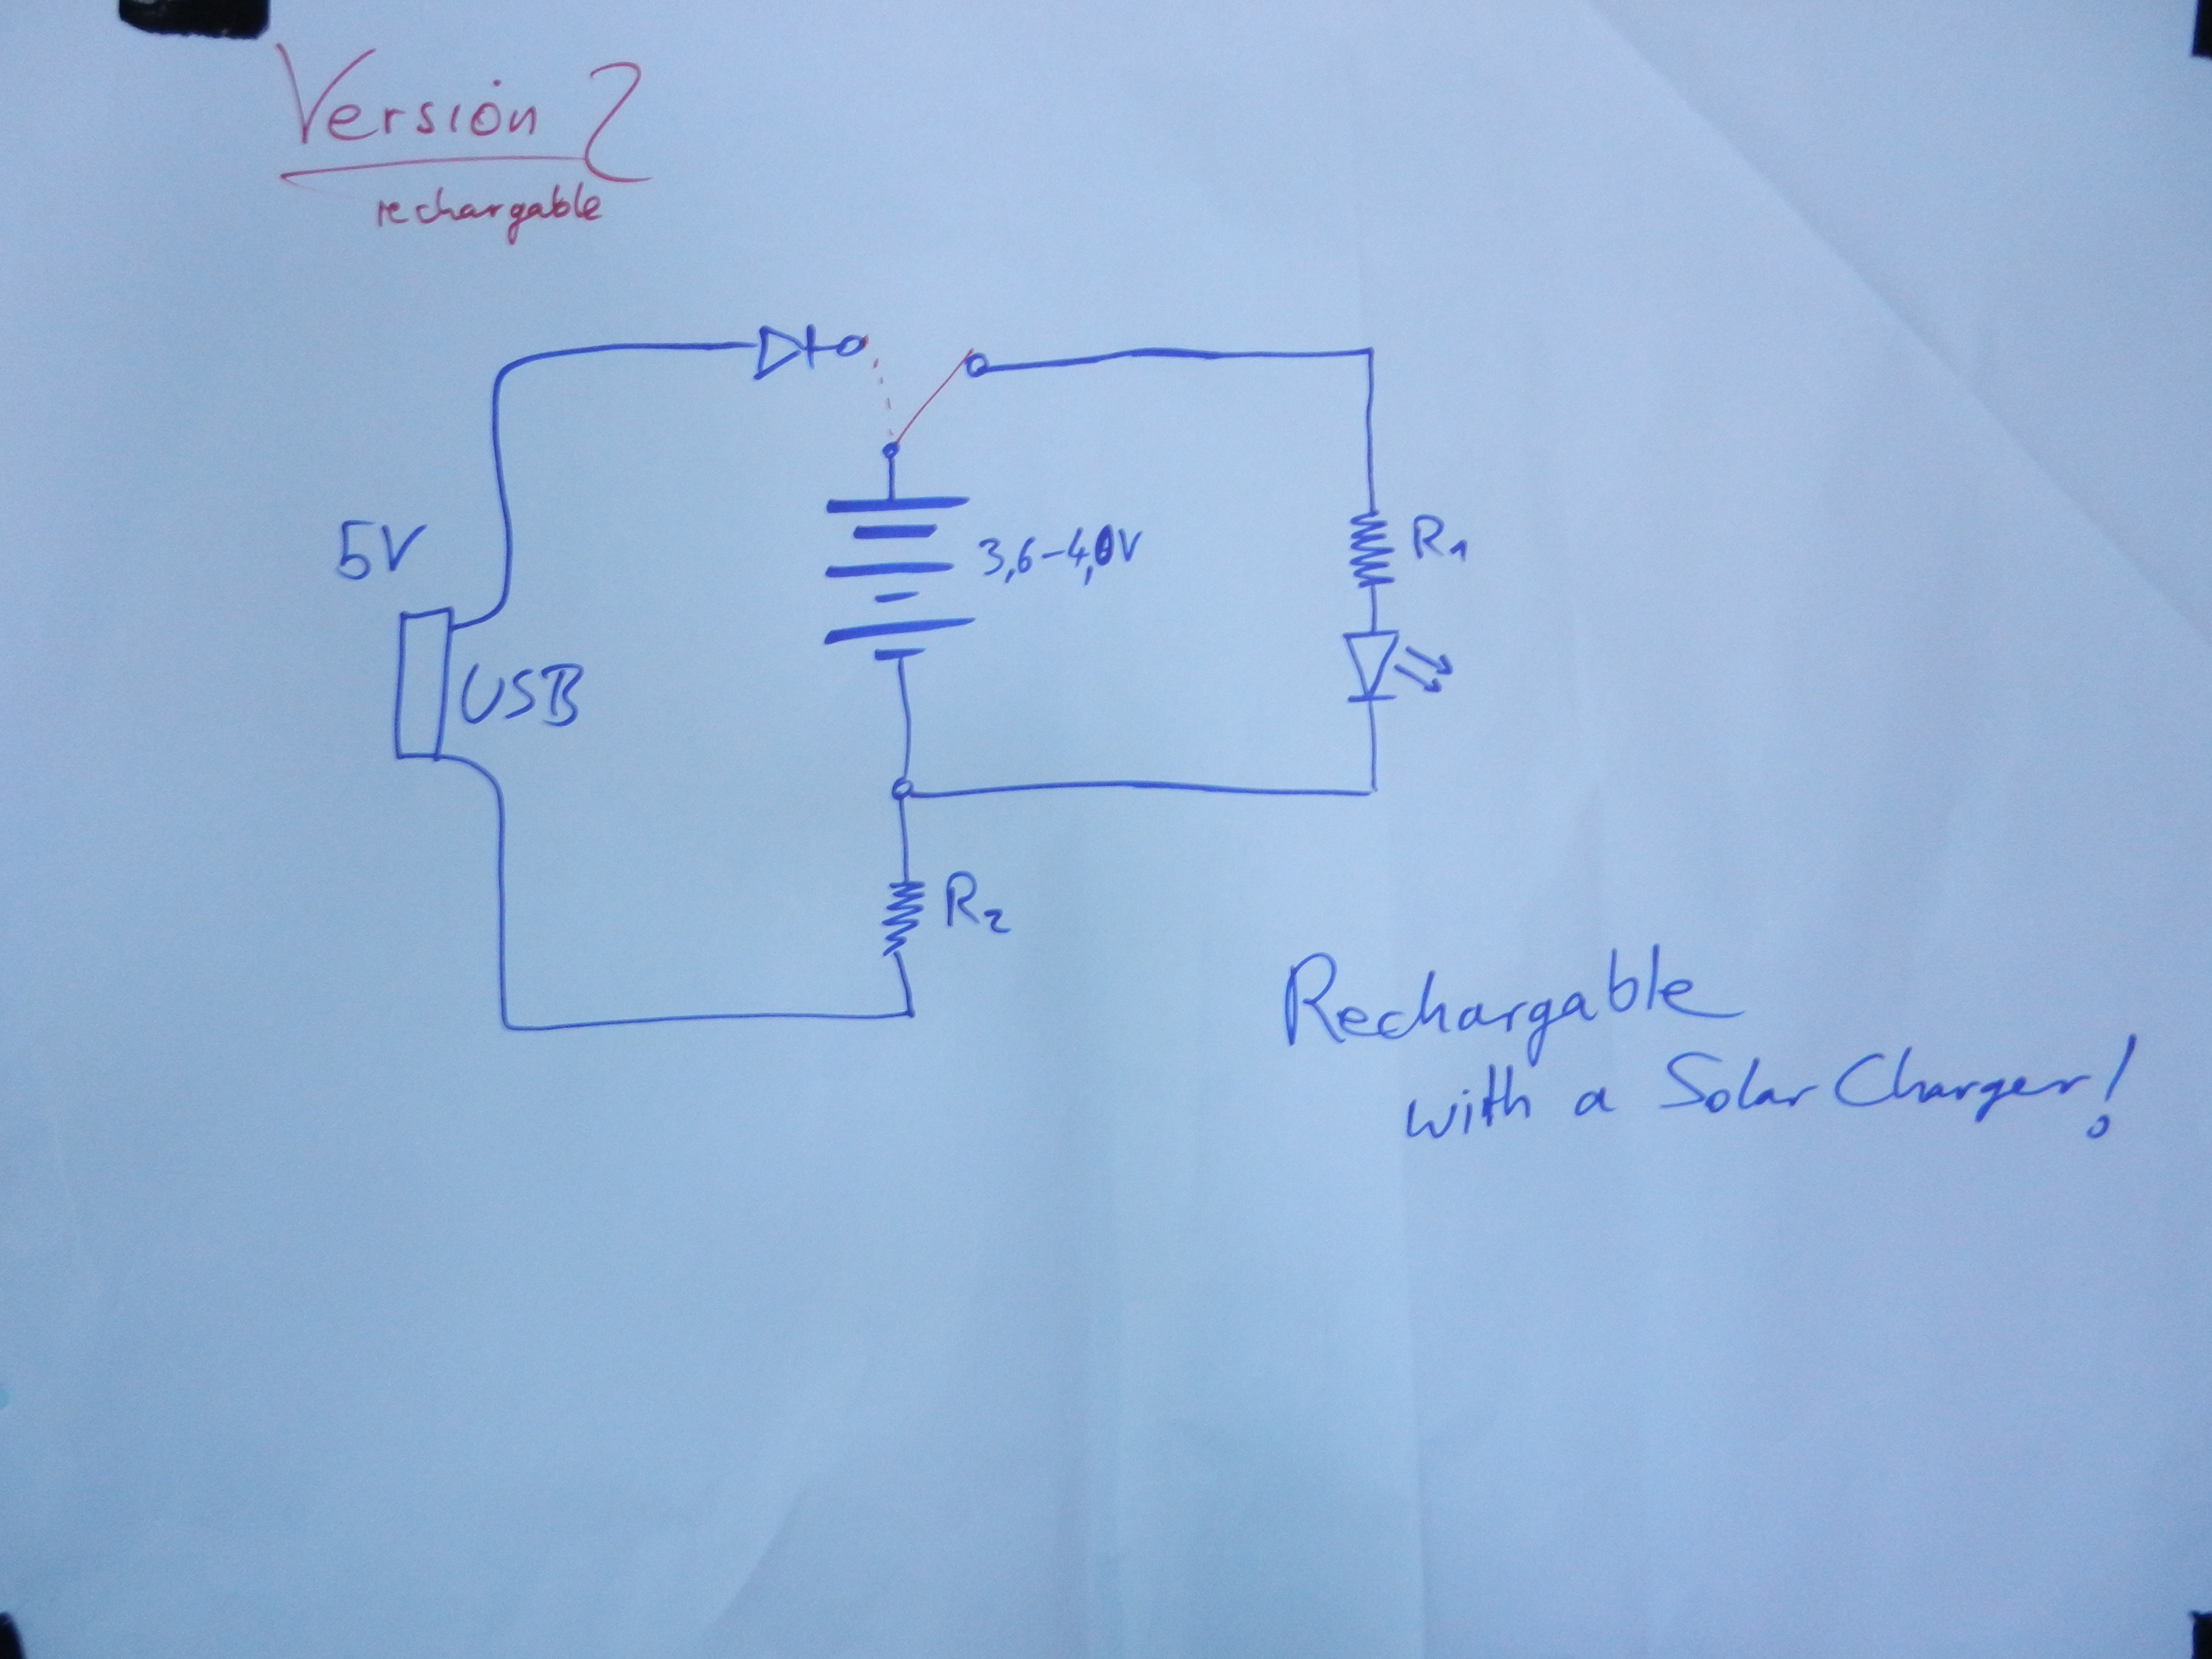 Version 2
rechargable
5V
3,6-4,0V
R1
USB
R2
Rechargable
with a Solar Charger!